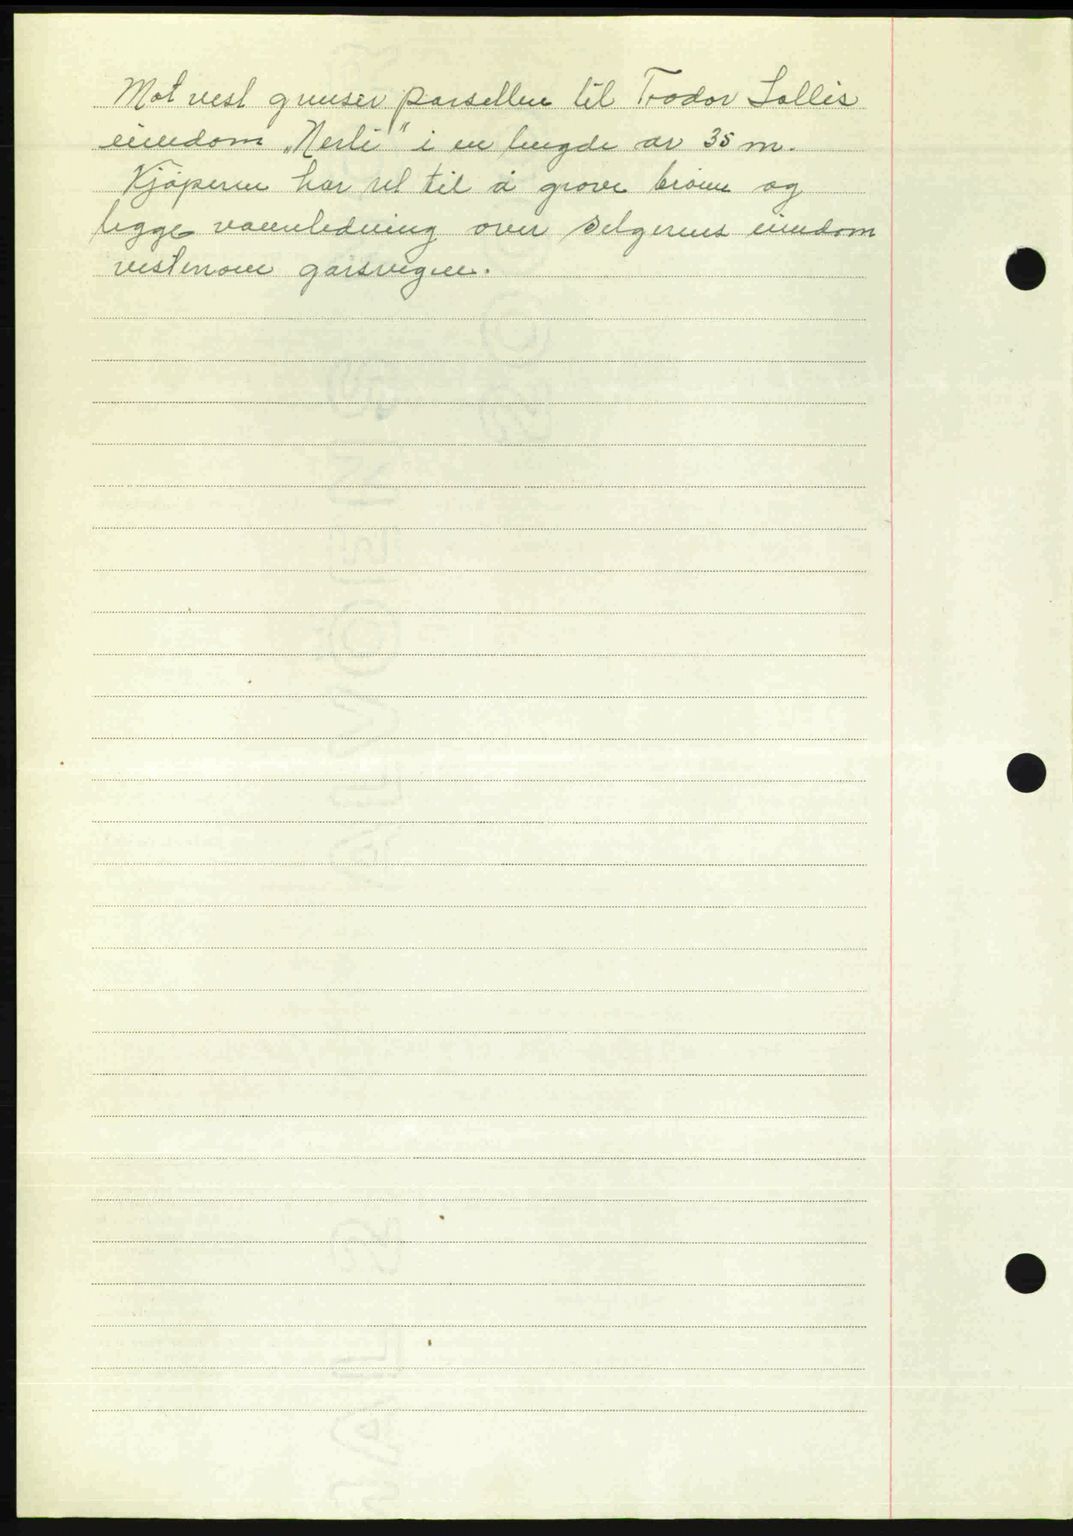 Mot vest grenser parsellen til Trodor Lollis
eiendom „Nerli" i en lengde av 35 m.
Kjøperen har ret til å grave brønn og
legge vannledning over selgerens eiendom
vestenom garsvegen.